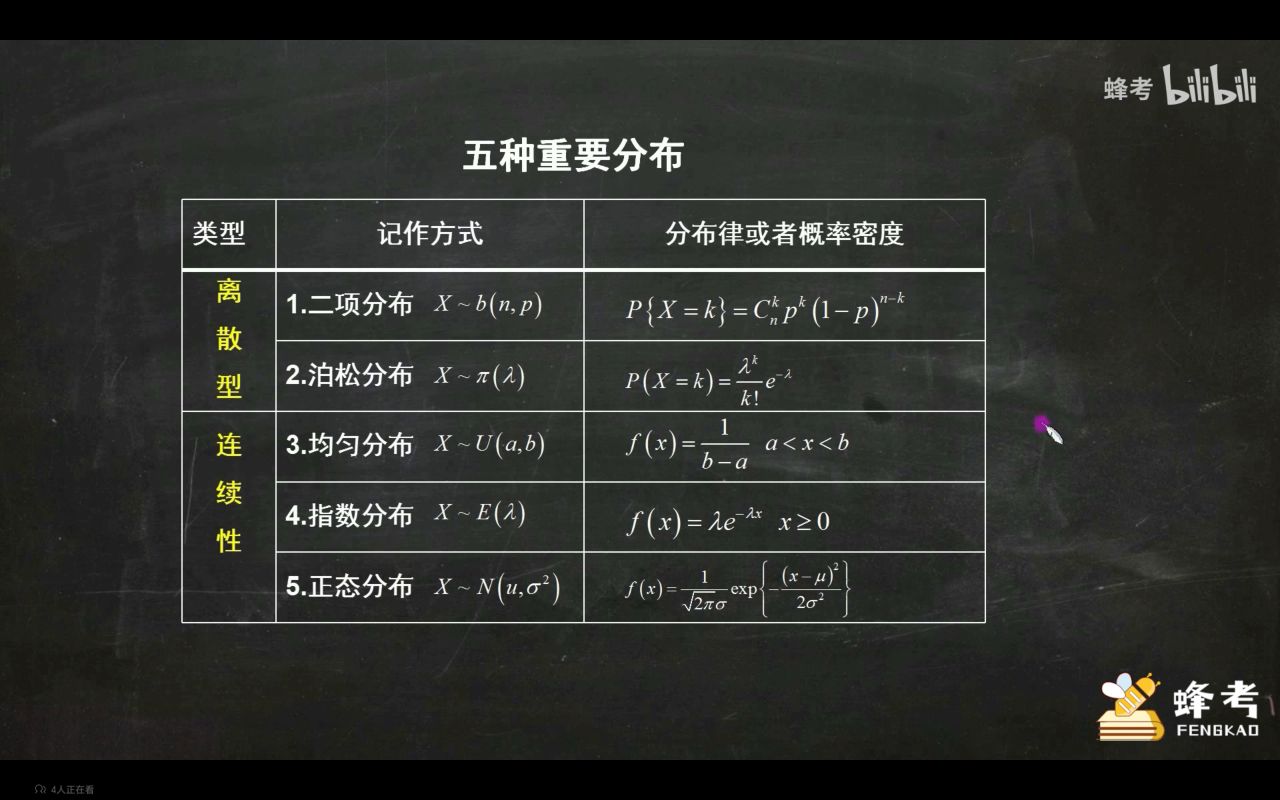 蜂考 bilibili
五种重要分布
类型 记作方式 分布律或者概率密度
离散型
1.二项分布 X ~ b(n, p) P{X = k} = C_n^k p^k (1 − p)^{n−k}
2.泊松分布 X ~ π(λ) P(X = k) = λ^k/k! e^{−λ}
连续性
3.均匀分布 X ~ U(a,b) f(x) = 1/(b − a) a < x < b
4.指数分布 X ~ E(λ) f(x) = λe^{−λx} x ≥ 0
5.正态分布 X ~ N(u,σ²) f(x) = 1/(√2π σ) exp{−(x − μ)²/2σ²}
蜂考
FENGKAO
4人正在看